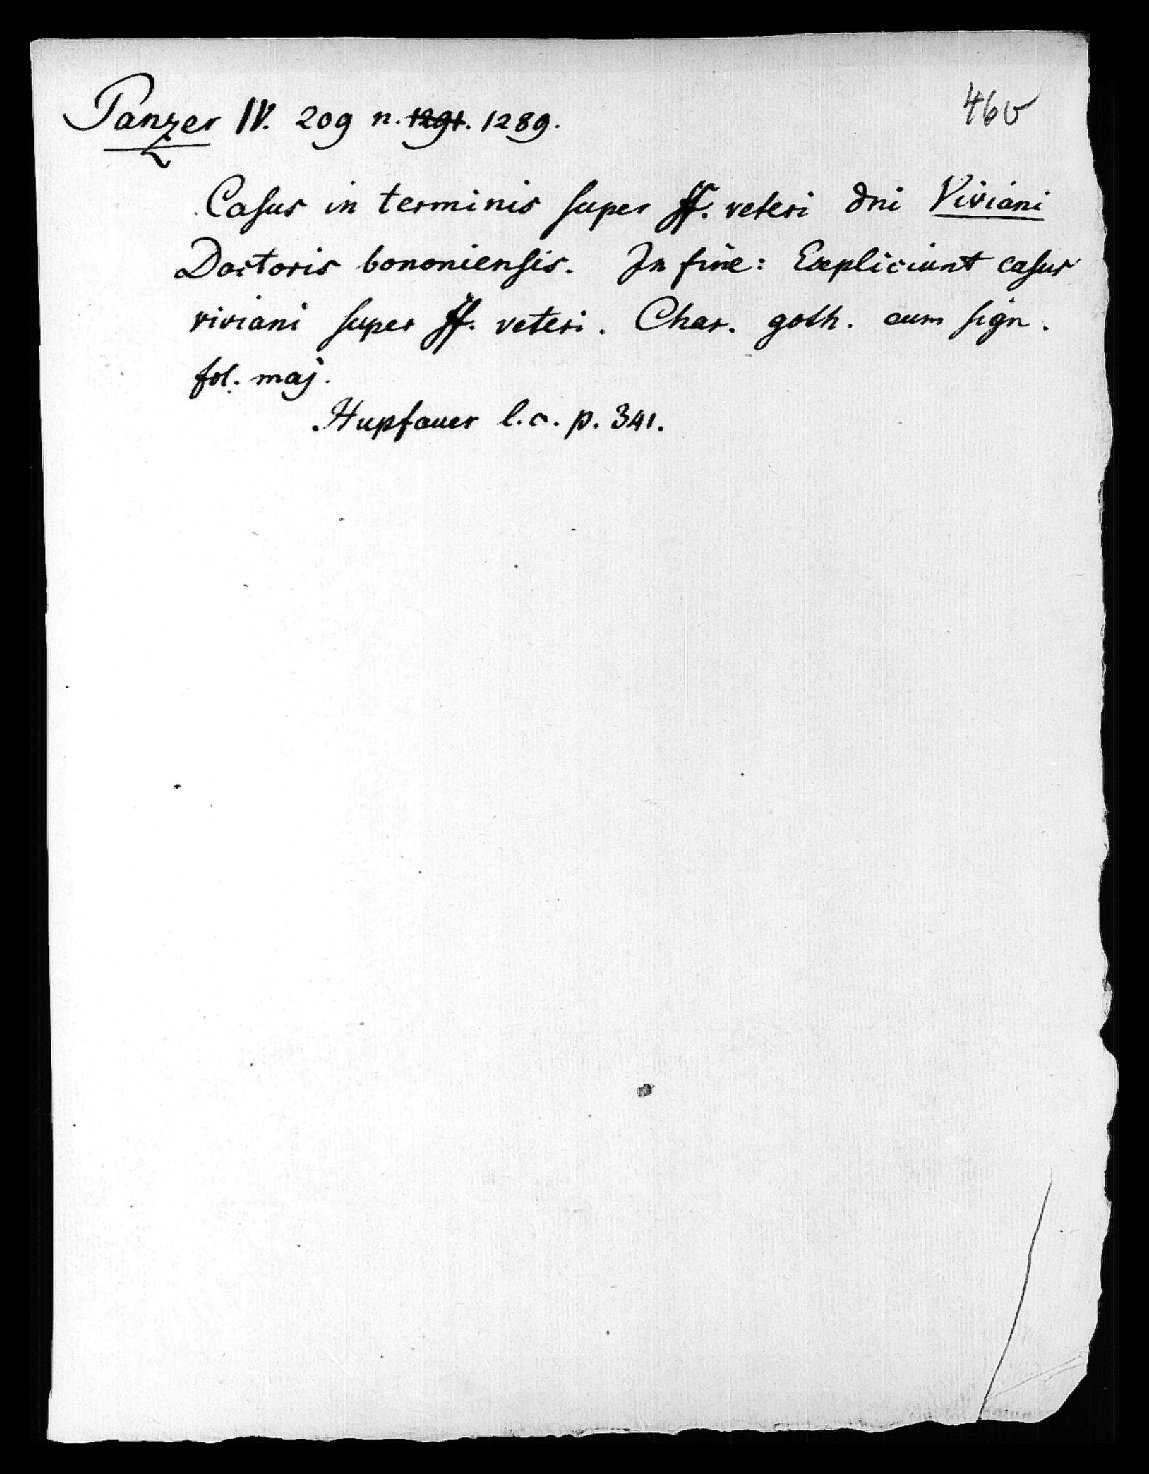 Panzer IV. 209 n. 1291. 1289.
460
Casus in terminis super ff. veteri dni Viviani
Doctoris bononiensis. In fine: Expliciunt casus
viviani super ff. veteri. Char. goth. cum sign.
fol. maj.
Hupfauer l.c. p. 341.